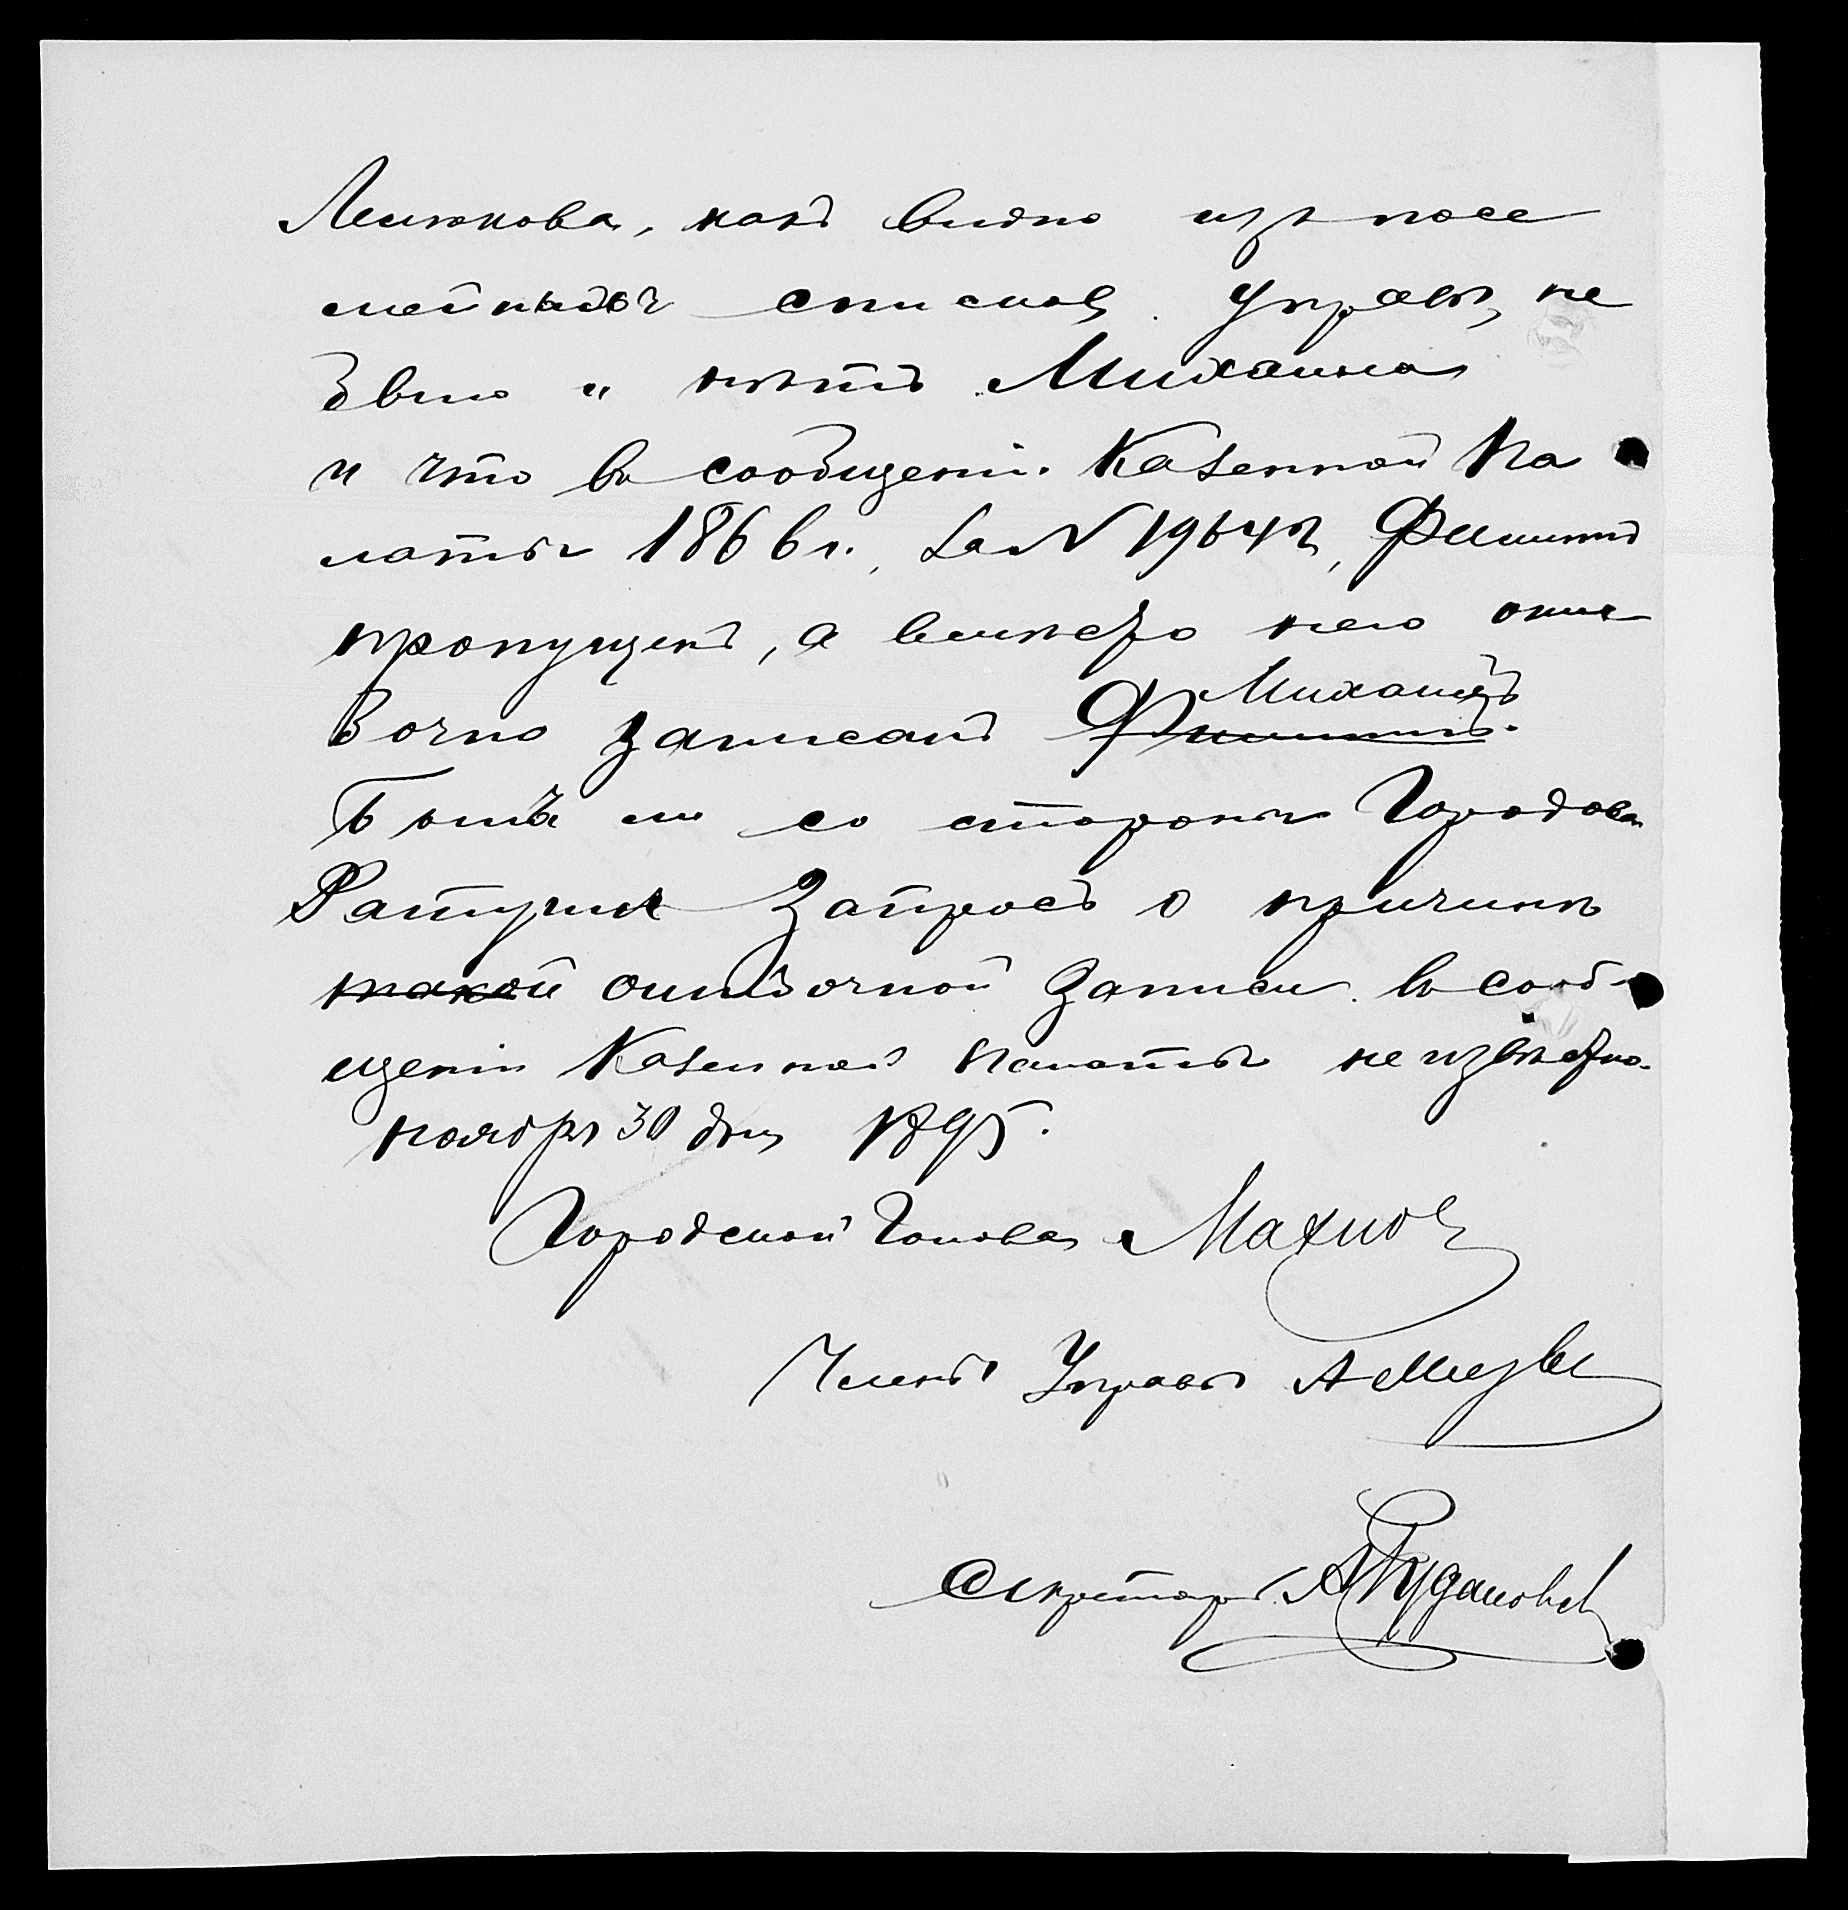 Лемюкова, какъ видно изъ посе
мейныхъ списковъ Управы, не
было и нѣтъ Михаила
и что въ сообщеніи Казенной Па
латы 1866 г., за №, Филиппъ
пропущенъ, а вмѣсто него оши
бочно записанъ Михаилъ
Филиппъ.
Былъ ли со стороны Городовой
Ратуши запросъ о причинѣ
такой ошибочной записи въ сооб-
щеніи Казенной Палаты не извѣстно.
Ноября 30 дня 1895.
Городской Голова Махновъ
Членъ Управы А
Секретарь